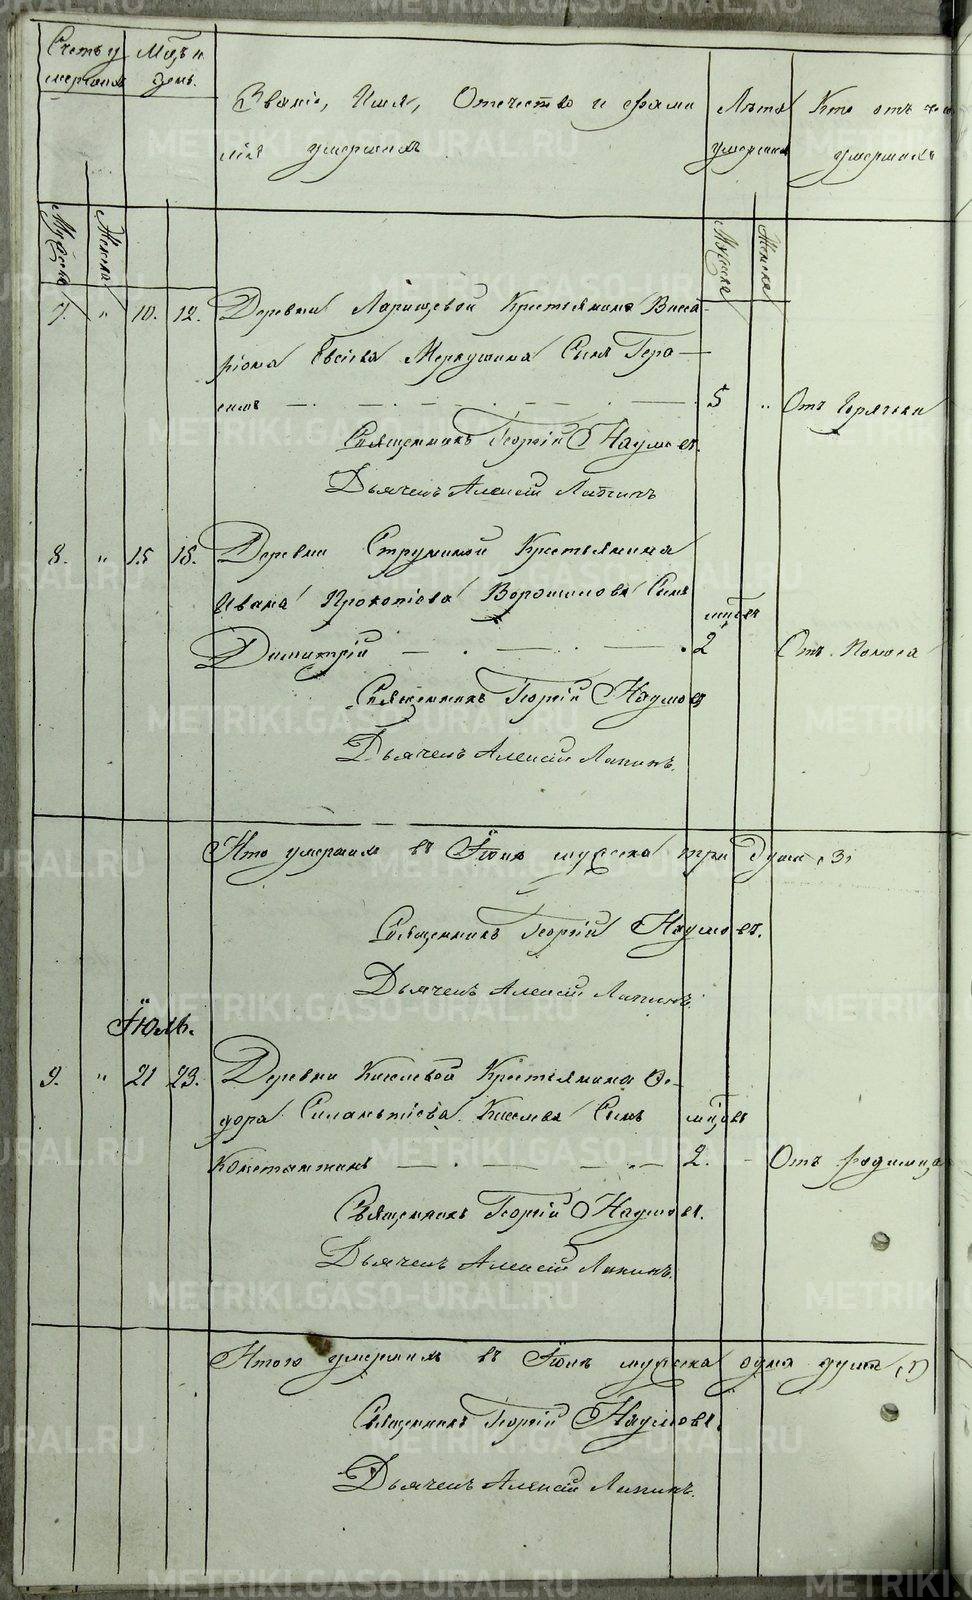 Счетъ у
мершихъ
Мцъ и
день.
Званіе, Имя, Отечество и фами
лія умершихъ
Лѣта
умершихъ
Кто отъ чего
умершихъ
Мужска
Женска
Мужска
Женска
7. " 10. 12. Деревни Ларищевой Крестьянина Висса-
ріона Евсіева Меркушина Сынъ Гера-
симъ 5 " Отъ Горячки
Священникъ Георгій Наумовъ.
Дьячекъ Алексій Лапинъ
8. " 15 18. Деревни Струниной Крестьянина
Ивана Прокопіева Ворошилова Сынъ мцовъ
Димитрій 2 Отъ Поноса
Священникъ Георгій Наумовъ
Дьячекъ Алексій Лапинъ.
Итого умершихъ въ Іюнѣ мужска три души (3)
Священникъ Георгій Наумовъ.
Дьячекъ Алексій Лапинъ.
Іюль.
9. " 21 23. Деревни Киселевой Крестьянина Ѳе-
дора Силантіева Киселева Сынъ мцовъ
Константинъ 2. Отъ родимца
Священникъ Георгій Наумовъ.
Дьячекъ Алексій Лапинъ.
Итого умершихъ въ Іюлѣ мужска одна душа (1)
Священникъ Георгій Наумовъ.
Дьячекъ Алексій Лапинъ.
METRIKI.GASO-URAL.RU